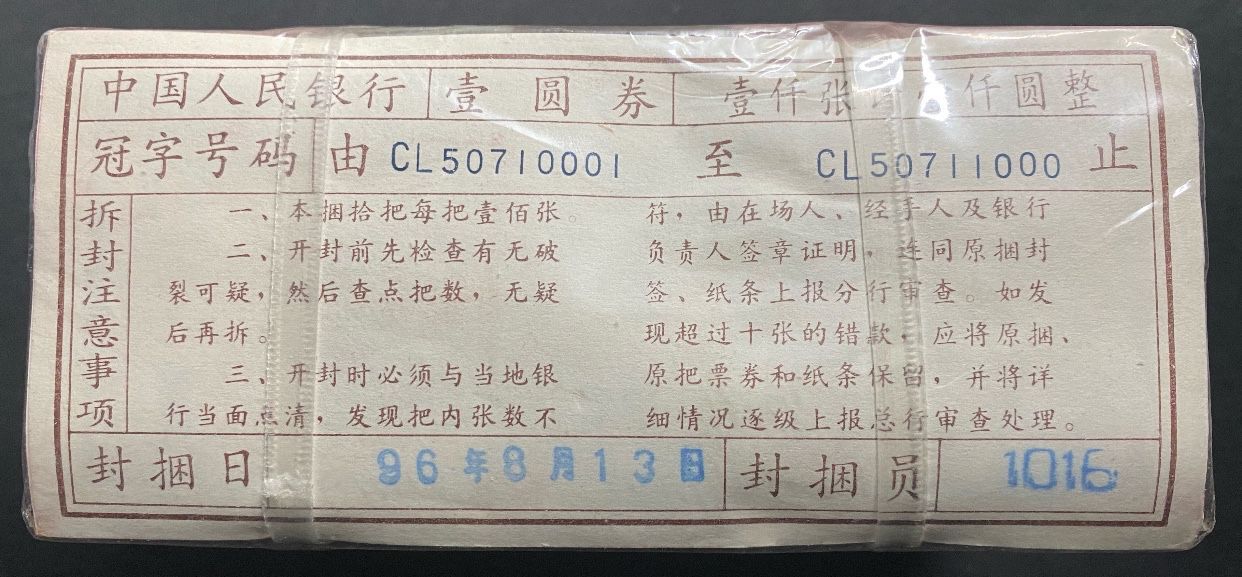 中国人民银行 壹圆券 壹仟张计壹仟圆整
冠字号码 由 CL50710001 至 CL50711000 止
拆封注意事项
一、本捆拾把每把壹佰张。
二、开封前先检查有无破
裂可疑，然后查点把数，无疑
后再拆。
三、开封时必须与当地银
行当面点清，发现把内张数不
符，由在场人、经手人及银行
负责人签章证明，连同原捆封
签、纸条上报分行审查。如发
现超过十张的错款，应将原捆、
原把票券和纸条保留，并将详
细情况逐级上报总行审查处理。
封捆日 96年8月13日 封捆员 1016